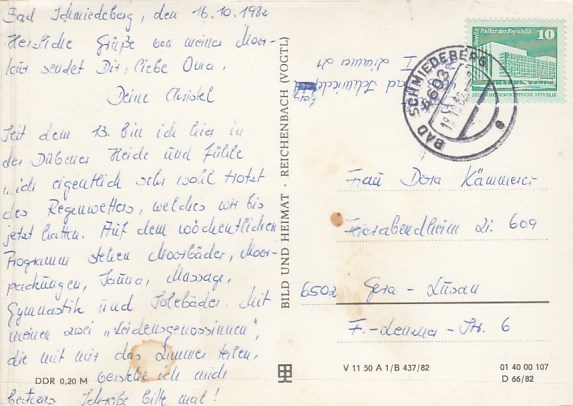 Bad Schmiedeberg, den 16.10.1982
Herzliche Grüße von meiner Moor-
kur sendet Dir, liebe Oma,
Deine Christel
Seit dem 13. bin ich hier in
der Dübener Heide und fühle
mich eigentlich sehr wohl trotz
des Regenwetters, welches wir bis
jetzt hatten. Auf dem wöchentlichen
Programm stehen Moorbäder, Moor-
packungen, Sauna, Massage,
Gymnastik und Solebäder. Mit
meinen zwei "Leidensgenossinnen",
die mit mir das Zimmer teilen,
verstehe ich mich
bestens. Schreibe bitte mal!
DDR 0,20 M
BILD UND HEIMAT · REICHENBACH (VOGTL)
Bad Schmiedeberg
Zimmer 21
Palast der Republik
10
DEUTSCHE DEMOKRATISCHE REPUBLIK
BAD SCHMIEDEBERG
6603
Frau Dora Kämmerer
Feierabendheim Zi. 609
6502 Gera-Lusan
Str. 6
V 11 50 A 1/B 437/82
01 40 00 107
D 66/82